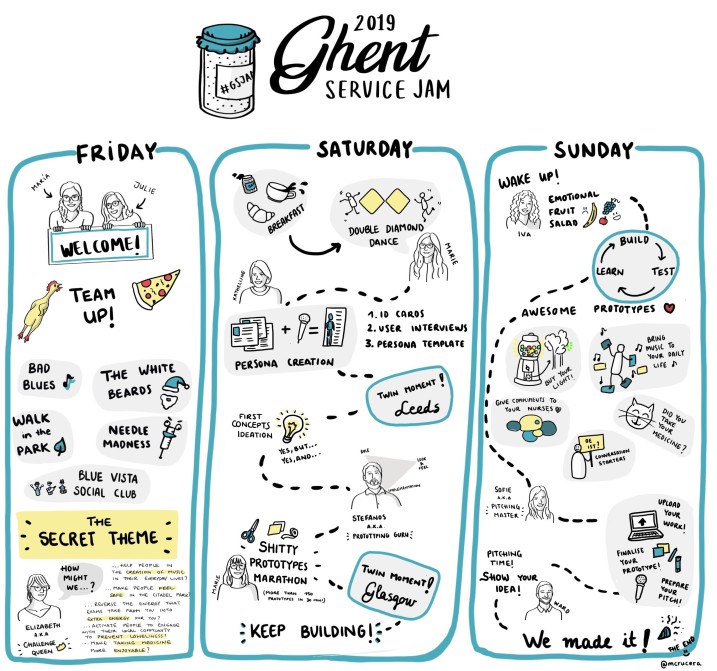 2019
Ghent
SERVICE JAM
#GSJAM
FRIDAY
MARIA
JULIE
WELCOME!
TEAM
UP!
BAD
BLUES
THE WHITE
BEARDS
WALK
in the
PARK
NEEDLE
MADNESS
BLUE VISTA
SOCIAL CLUB
THE
SECRET THEME
HOW
MIGHT
WE...?
ELIZABETH
A.K.A
CHALLENGE
QUEEN
...HELP PEOPLE IN
THE CREATION OF MUSIC
IN THEIR EVERYDAY LIVES?
...MAKE PEOPLE FEEL
SAFE IN THE CITADEL PARK
...REVERSE THE ENERGY THAT
EXAMS TAKE FROM YOU INTO
EXTRA ENERGY FOR YOU?
...ACTIVATE PEOPLE TO ENGAGE
WITH THEIR LOCAL COMMUNITY
TO PREVENT LONELINESS?
...MAKE TAKING MEDICINE
MORE ENJOYABLE?
SATURDAY
BREAKFAST
DOUBLE DIAMOND
DANCE
MARIE
KATHELIJNE
PERSONA CREATION
1. ID CARDS
2. USER INTERVIEWS
3. PERSONA TEMPLATE
TWIN MOMENT!
Leeds
FIRST
CONCEPTS
IDEATION
YES, BUT...
YES, AND...
ROLE
LOOK &
FEEL
IMPLEMENTATION
STEFANOS
A.K.A.
PROTOTYPING GURU
SHITTY
PROTOTYPES
MARATHON
(MORE THAN 450
PROTOTYPES IN 30 min!)
MARIE
TWIN MOMENT!
Glasgow
KEEP BUILDING!
SUNDAY
WAKE UP!
EMOTIONAL
FRUIT
SALAD
IVA
BUILD
LEARN
TEST
AWESOME PROTOTYPES
OUT YOUR
LIGHT!
BRING
MUSIC TO
YOUR DAILY
LIFE
GIVE COMPLIMENTS TO
YOUR NURSES
DID YOU
TAKE
YOUR
MEDICINE?
CONVERSATION
STARTERS
SOFIE
A.K.A
PITCHING
MASTER
UPLOAD
YOUR
WORK!
FINALISE
YOUR
PROTOTYPE!
PREPARE
YOUR
PITCH!
PITCHING
TIME!
SHOW YOUR
IDEA!
WARD
We made it!
THE END
@mcrucera